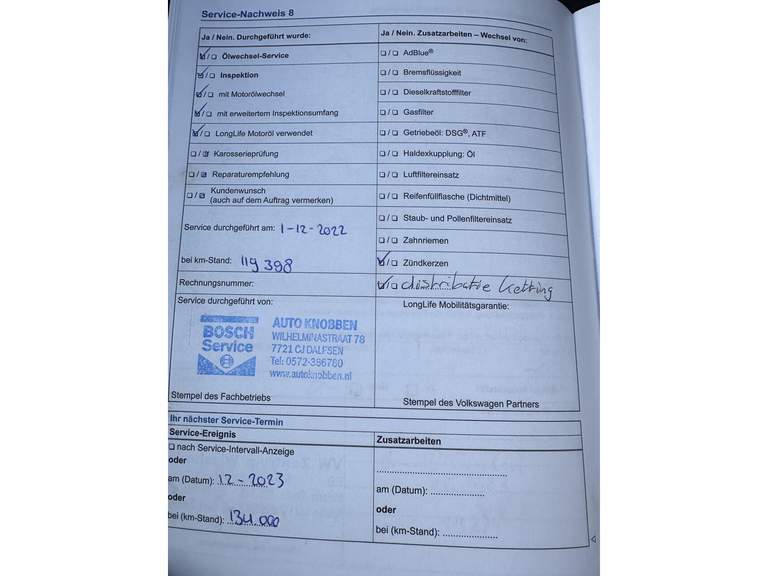 Service-Nachweis 8
Ja / Nein. Durchgeführt wurde:
☑/☐ Ölwechsel-Service
☑/☐ Inspektion
☑/☐ mit Motorölwechsel
☑/☐ mit erweitertem Inspektionsumfang
☑/☐ LongLife Motoröl verwendet
☐/☑ Karosserieprüfung
☐/☑ Reparaturempfehlung
☐/☑ Kundenwunsch
(auch auf dem Auftrag vermerken)
Service durchgeführt am: 1-12-2022
bei km-Stand: 119 398
Rechnungsnummer:
Service durchgeführt von:
BOSCH
Service
AUTO KNOBBEN
WILHELMINASTRAAT 78
7721 CJ DALFSEN
Tel: 0572-386780
www.autoknobben.nl
Stempel des Fachbetriebs
Ja / Nein. Zusatzarbeiten – Wechsel von:
☐/☐ AdBlue®
☐/☐ Bremsflüssigkeit
☐/☐ Dieselkraftstofffilter
☐/☐ Gasfilter
☐/☐ Getriebeöl: DSG®, ATF
☐/☐ Haldexkupplung: Öl
☐/☐ Luftfiltereinsatz
☐/☐ Reifenfüllflasche (Dichtmittel)
☐/☐ Staub- und Pollenfiltereinsatz
☐/☐ Zahnriemen
☑/☐ Zündkerzen
☑/☐ distributie ketting
LongLife Mobilitätsgarantie:
Stempel des Volkswagen Partners
Ihr nächster Service-Termin
Service-Ereignis
☐ nach Service-Intervall-Anzeige
oder
am (Datum): 12-2023
oder
bei (km-Stand): 134.000
Zusatzarbeiten
....................................
am (Datum): ...................
oder
bei (km-Stand): ...................